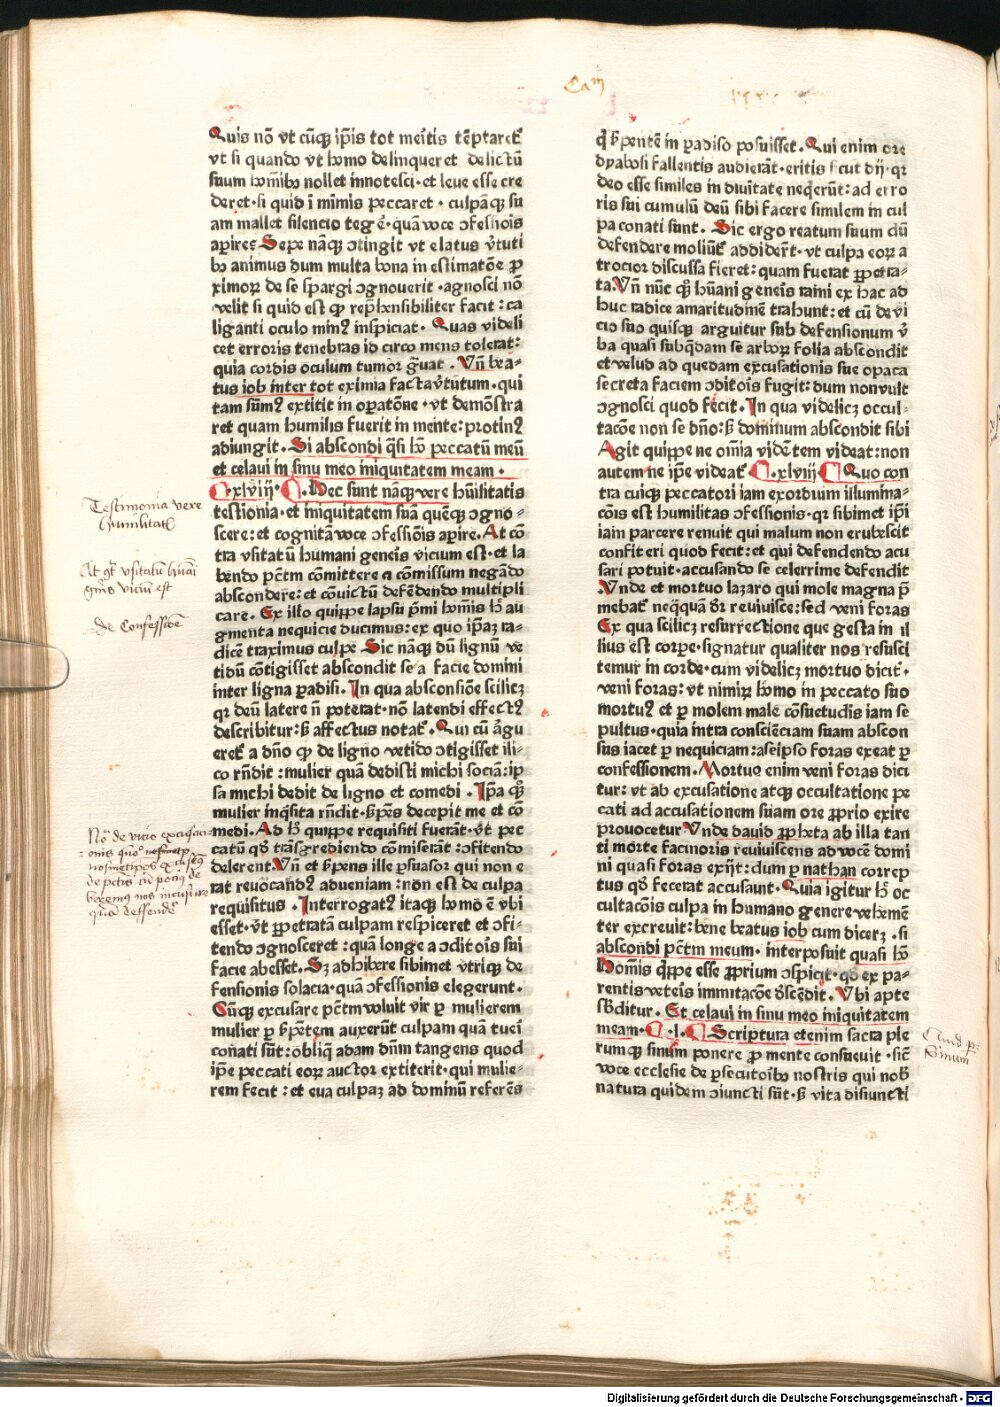 Cam
Quis nō vt cūqꝫ ip̄is tot meritis tēptaretꝛ
vt si quando vt homo delinqueret delictū
suum hom̄ibꝰ nollet innotesci · et leue esse cre
deret · si quid ī mimis peccaret · culpāqꝫ su
am mallet silencio tegēꝰ · quā voce ꝯfessiois
apirēꝰ Sepe nāqꝫ ꝯtingit vt elatus ṽtuti
bꝰ animus dum multa bona in estimatōe ꝓ
ximoꝝ de se spargi ꝯgnouerit · agnosci nō
velit si quid est ꝙ rep̄hensibiliter facit : ca
liganti oculo minꝰ inspiciat · Quas videli
cet erroris tenebras id circo mens tolerat :
quia cordis oculum tumor g̃uat · Vn̄ bea-
tus iob inter tot eximia facta ṽtutum · qui
tam sūmꝰ extitit in opatōne · vt demōstra
ret quam humilis fuerit in mente : protinꝰ
adiungit · Si abscondi q̄si hō peccatū meū
et celaui in sinu meo iniquitatem meam ·
xlviij · Hec sunt nāqꝫ vere hūilitatis
testionia · et iniquitatem suā quēqꝫ ꝯgno-
scere : et cognitā voce ꝯfessiōis apire. At cō
tra vsitatū humani geneīs vicium est · et la
bendo pctm cōmittere a cōmissum negādo
abscondere : et cōuictū defēdendo multipli
care. Ex illo quippe lapsu p̄mi homīs hō au
gmenta nequicie ducimus : ex quo ip̄aꝫ ra-
dicē traximus culpe Sic nāqꝫ dū lignū ve
tidū cōtigisset abscondit se a facie domini
inter ligna padisi. In qua absconsiōe scilicꝫ
qꝛ deū latere n̄ poterat · nō latendi effectꝰ
describitur : ꝫ affectus notatꝛ. Qui cū āgu
eretꝛ a dn̄o ꝙ de ligno vetido ꝯtigisset ili-
co rn̄dit : mulier quā dedisti michi sociā : ip
sa michi dedit de ligno et comedi. Ip̄a qꝫ
mulier inq̄sita rn̄dit · ꝫpēs decepit me et cō
medi. Ad hō quippe requisiti fuerāt · vt pec
catū qd̄ trāsgrediendo cōmiserāt : ꝯfitendo
delerent. Vn̄ et ꝫpens ille psuasor qui non e
rat reuocandꝰ adueniam : non est de culpa
requisitus. Interrogatꝰ itaqꝫ homo ē vbi
esset · vt ppetratā culpam respiceret et ꝯfi-
tendo ꝯgnosceret : quā longe a ꝯditoīs sui
facie abesset. Sꝫ adhibere sibimet vtriqꝫ de
fensionis solacia · quā ꝯfessionis elegerunt.
Cūqꝫ excusare pctm voluit vir p mulierem
mulier p ꝫpētem auxerūt culpam quā tuei
conati sūt : obliq̄ adam dn̄m tangens quod
ip̄e peccati eoꝝ auctor extiterit · qui mulie-
rem fecit : et eua culpaꝫ ad dominū referēs
q̄ ꝫpentē in padiso posuisset. Qui enim ore
dyaboli fallentis audierāt · eritis sicut dij · qꝛ
deo esse similes in diuitate neq̄erūt : ad erro
ris sui cumulū deū sibi facere similem in cul
pa conati sunt. Sic ergo reatum suum dū
defendere moliūtꝛ addiderꝛt · vt culpa eoꝝ a
trocior discussa fieret : quam fuerat ppetra-
ta. Vn̄ nūc qꝫ hūani geneīs rami ex hac ad
huc radice amaritudinē trahunt : et cū de vi
cio suo quisqꝫ arguitur sub defensionum ṽ
ba quasi subq̄dam se arboꝝ folia abscondit
et velud ad quedam excusationis sue opaca
secreta faciem ꝯditoīs fugit : dum non vult
ꝯgnosci quod fecit. In qua videlicꝫ occul-
tacōe non se dn̄o : ꝫ dominum abscondit sibi
Agit quippe ne om̄ia vidētem videat : non
autem ne ip̄e videatꝛ · xlviij Quo con
tra cuiqꝫ peccatori iam exordium illumina-
cōis est humilitas ꝯfessionis · qꝛ sibimet ip̄i
iam parcere renuit qui malum non erubescit
confiteri quod fecit : et qui defendendo acu
sari potuit · accusando se celerrime defendit
Vnde et mortuo lazaro qui mole magna p̄
mebatꝛ neq̄quā dr̄ reuiuisce : sed veni foras
Ex qua scilicꝫ resurrectione que gesta in il
lius est corpe · signatur qualiter nos resusci
temur in corde · cum videlicꝫ mortuo dicitꝛ ·
veni foras : vt nimiꝝ homo in peccato suo
mortuꝰ et p molem male cōsuetudīs iam se
pultus · quia intra consciēciam suam abscon
sus iacet p nequiciam : a seipso foras exeat p
confessionem. Mortuo enim veni foras dici
tur : vt ab excusatione atqꝫ occultatione pe
cati ad accusationem suam ore ꝓprio exire
prouocetur Vnde dauid ꝓpheta ab illa tan
ti morte facinoris reuiuiscens ad vocē domi
ni quasi foras exijt : dum p nathan correp
tus qd̄ fecerat accusauit. Quia igitur hō oc
cultacōis culpa in humano genere vehemē
ter excreuit : bene beatus iob cum dicerꝫ · si
abscondi pctm meum · interposuit quasi hō
Homīs q̄ppe esse ꝓprium ꝯspicit · qd̄ ex pa-
rentis veteīs immitacōe d̄scēdit. Vbi apte
sb̄ditur. Et celaui in sinu meo iniquitatem
meam · l · Scriptura etenim sacra ple
rumqꝫ sinum ponere ꝓ mente consueuit · sic̄
voce ecclesie de psecutoibꝰ nostris qui nob̄
natura quidem ꝯiuncti sūt · ꝫ vita disiuncti
Testimonia vere
humilitatꝭ
At ꝯᵗ vsitatū hūani
gn̄is viciū est
de Confessiōe